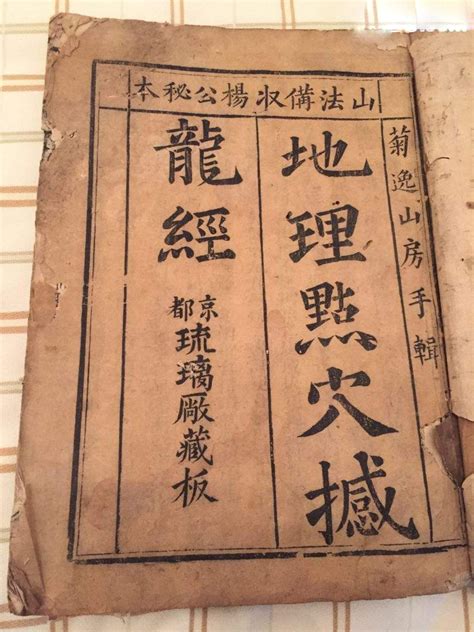 山法備收楊公秘本
菊逸山房手輯
地理點穴撼
龍經
京都
琉璃厰藏板